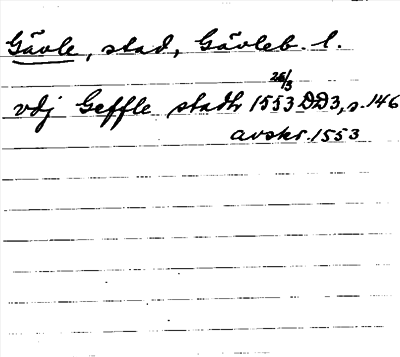 Gävle, stad, Gävleb. l.
vdj Geffle stadh 1553 26/3 DD3, s. 146
avskr. 1553